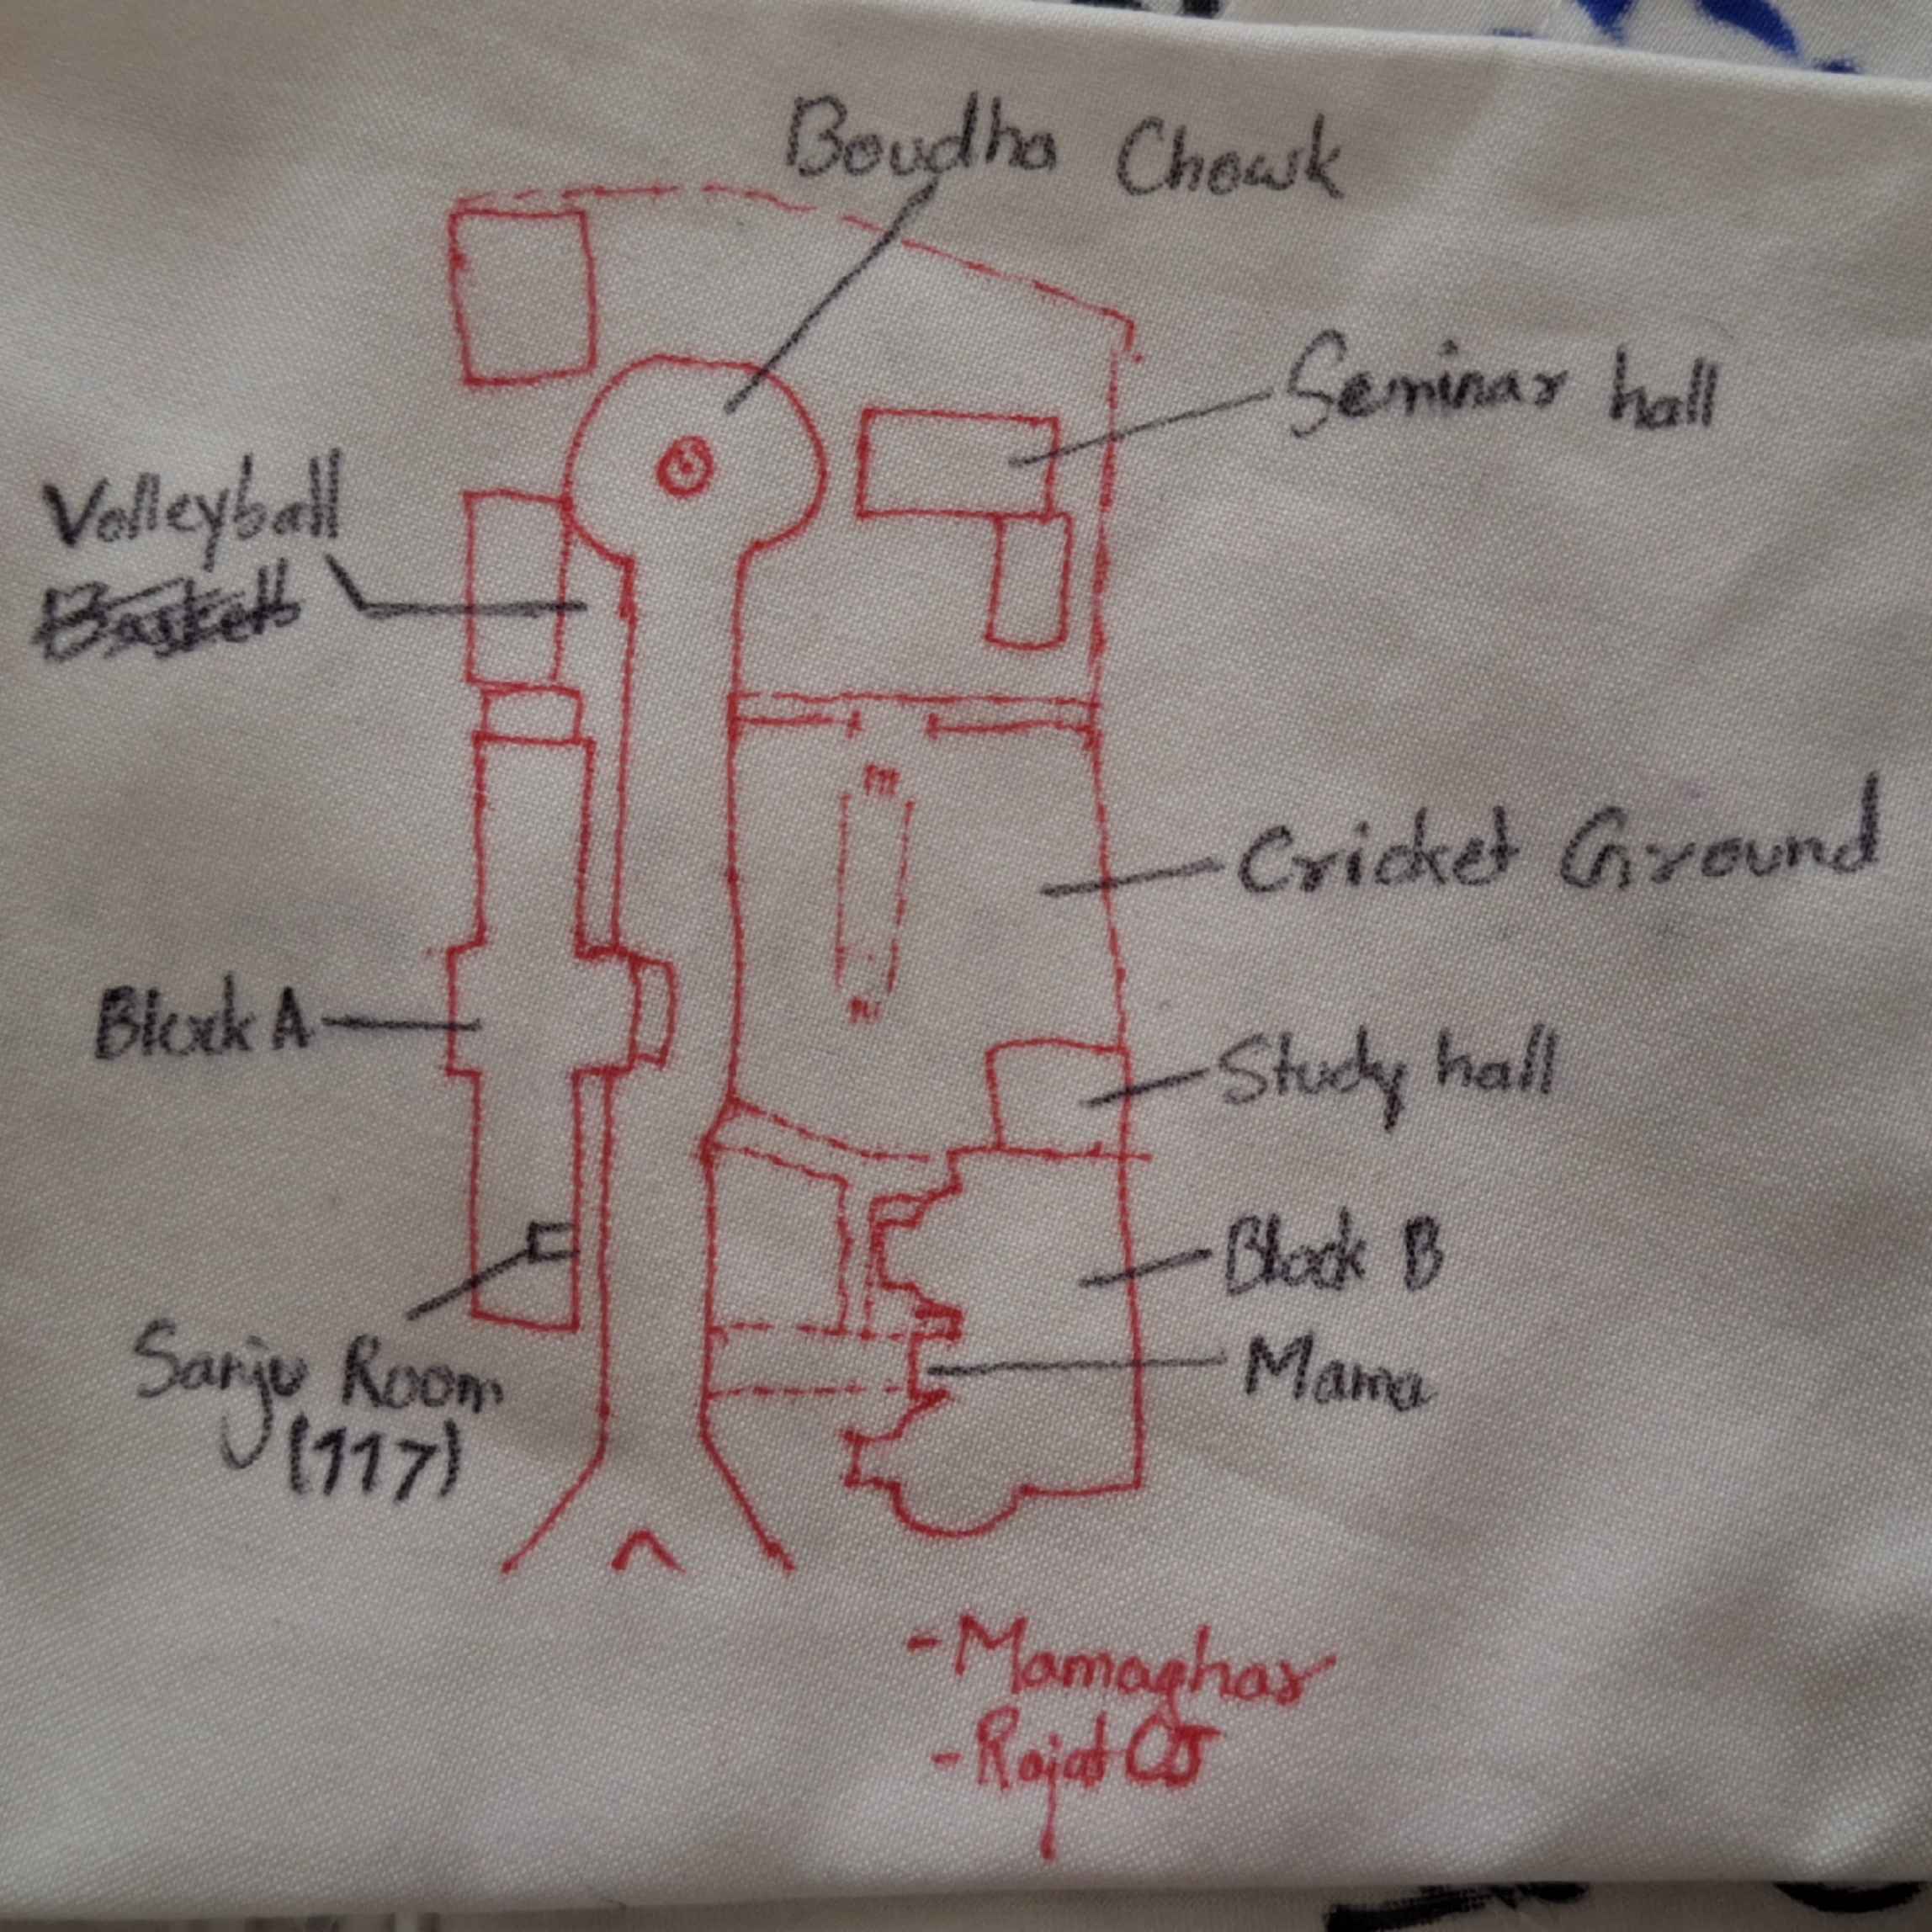 Boudha Chowk
Seminar hall
Volleyball
Cricket Ground
Block A
Study hall
Block B
Mama
Sanju Room
(117)
-Mamaghar
-Rajat